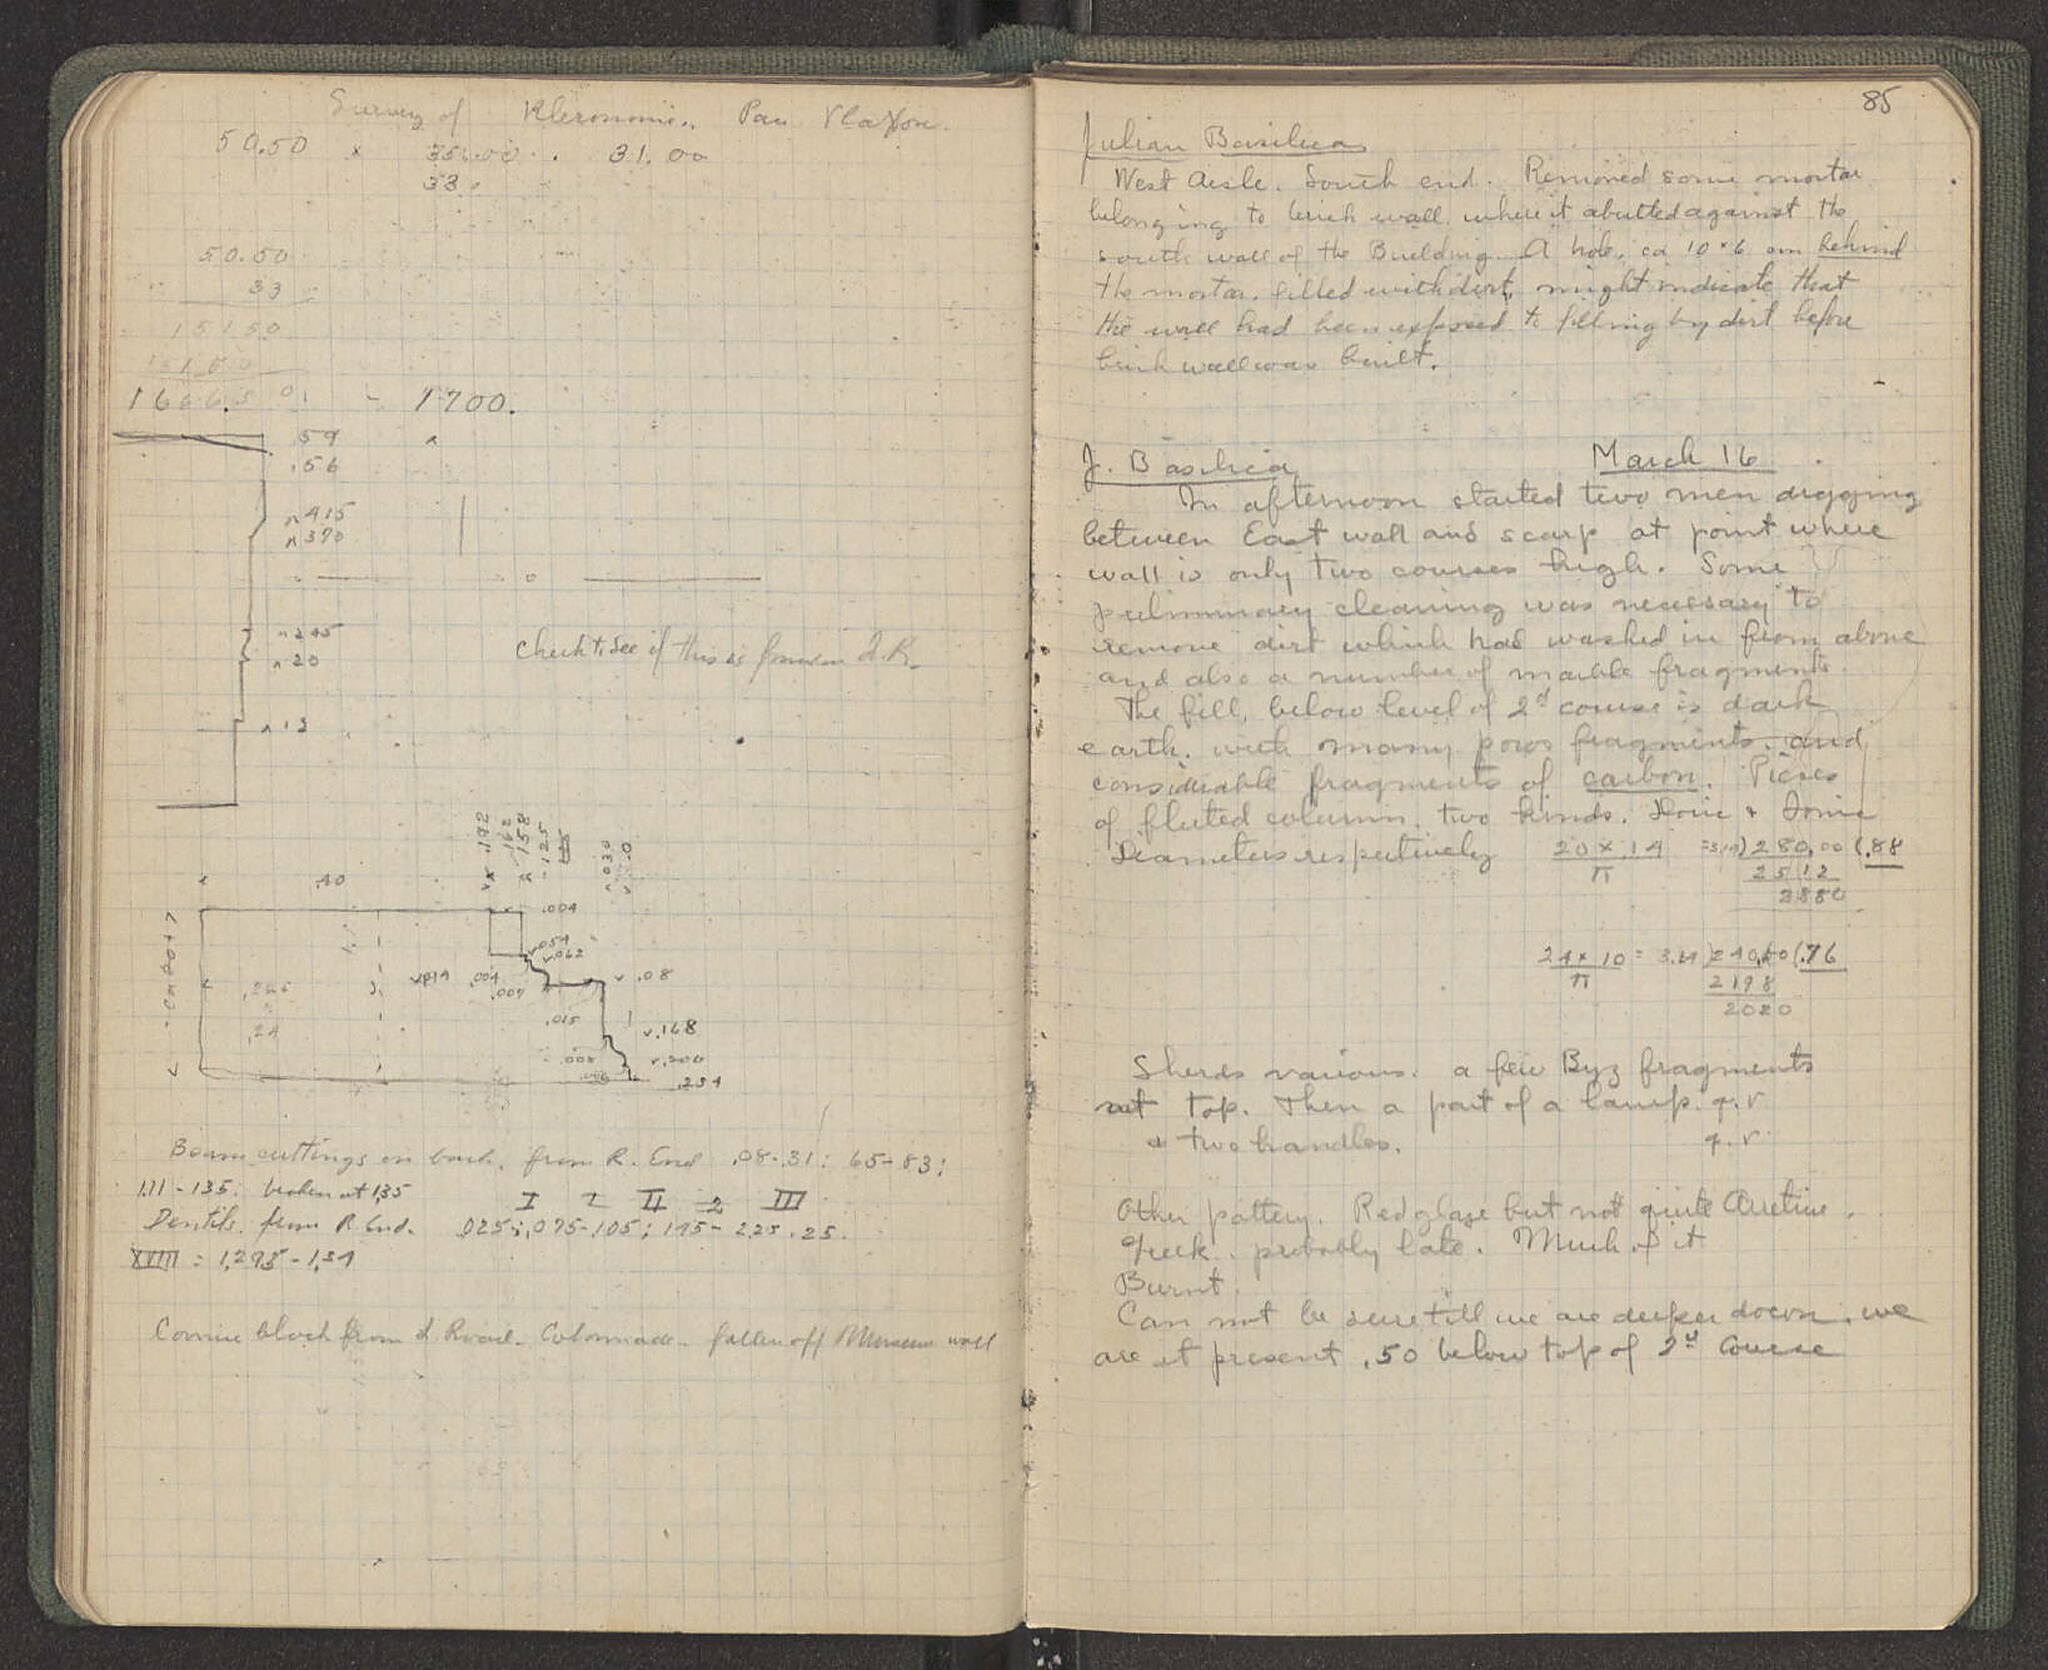 Survey of Kleronomi.. Pan Vlaxou.
50.50 x 351.00 . 31.00
33.
50.50
33
15150
1515 0
1666.5 0 - 1700.
.59
.56
^ 415
^ 370
^ 245
^ 20
^ 13
Check to see if this is from
.192
.162
.158
.125
.030
.0
.40
.004
.054
.062
.014 .004
.004
.08
.265
.24
.015
.168
.200
.008
.254
Beam cuttings on back, from R. End .08-.31: 65-83:
1.11-135: broken at 1,35
I I II 2 III
Dentils. from R End. .025;.075-.105; 145-225.25.
XVIII = 1,295-1,34
Cornice block from L Road. Colonnade. fallen off Museum wall
85
Julian Basilica
West Aisle. South end. Removed some mortar
belonging to brick wall where it abutted against the
south wall of the Building. A hole, ca 10 x 6 cm behind
the mortar, filled with dirt, might indicate that
the wall had been exposed to filling by dirt before
brick wall was built.
J. Basilica March 16
In afternoon started two men digging
between East wall and scarp at point where
wall is only two courses high. Some
preliminary cleaning was necessary to
remove dirt which had washed in from above
and also a number of marble fragments.
The fill, below level of 2d course is dark
earth, with many poros fragments and
considerable fragments of carbon. Pieces
of fluted column, two kinds. Doric + Ionic
Diameters respectively 20 x .14 = 3.14)280.00(.88
π 2512
2880
24 x 10 = 3.14)240.00(.76
π 2198
2020
Sherds various. a few Byz fragments
at top. Then a part of a lamp. q.v
& two handles. q.v.
Other pottery. Red glaze but not quite Arretine.
Greek. probably late. Much of it
Burnt.
Can not be sure till we are deeper down. we
are at present .50 below top of 2d Course